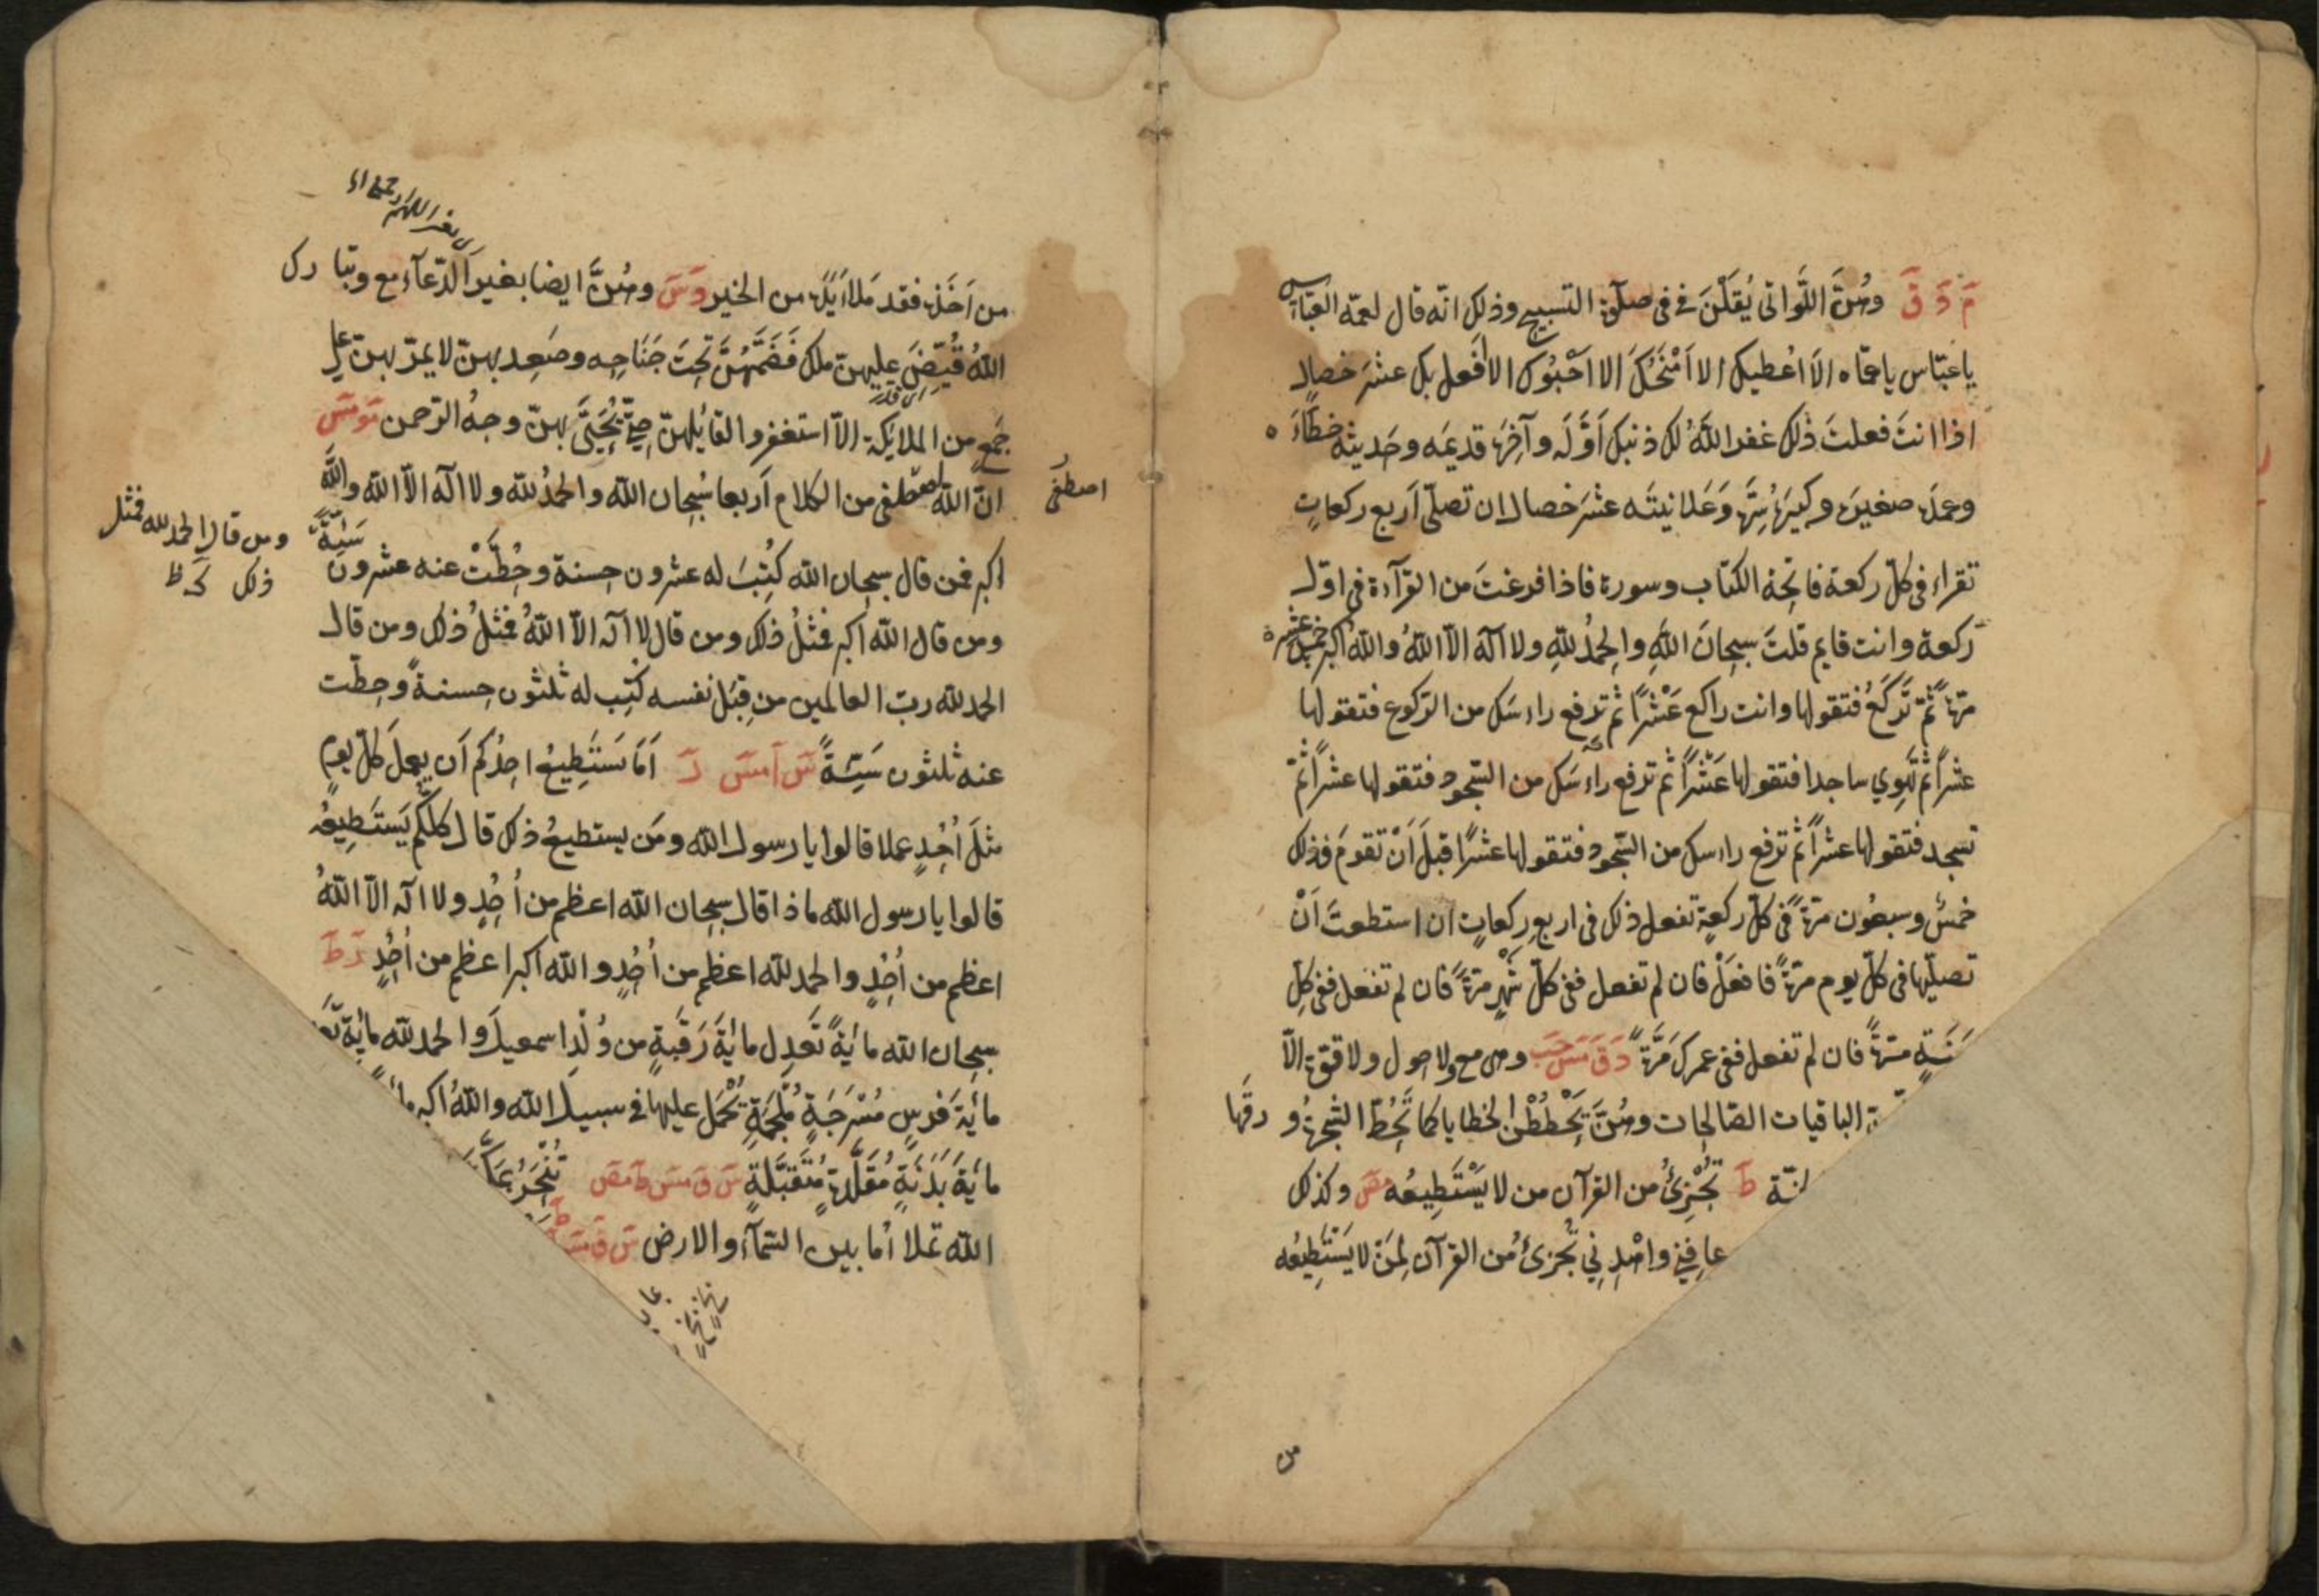 مَ دَ قَ وهُنَّ اللَّواتى يُقَلْنَ فى فى صلٰوة التسبيح وذلك انّه قال لعمّه العبّاس
يا عبّاس يا عمّاه الَا اُعطيك الا اَمْنَحُكَ الا اَحْبُوك الا افعل بك عشرَ خصال
اذا انتَ فعلتَ ذٰلك غفر اللّٰهُ لك ذنبك اَوَّلَه وآخِرَه قديمَه وحَديثَه خطَاءَه
وعمدَه صغيرَه وكبيرَه سِرَّه وَعَلانيتَه عشرَ خصال ان تصلّى اَربع ركعاتٍ
تقراء فى كلّ ركعة فاتحة الكتاب وسورة فاذا فرغتَ من القرآءة فى اوّل
ركعة وانت قايم قلتَ سبحانَ اللّٰهِ والحمدُ للّٰهِ ولا اله الّا اللّٰهُ واللّٰه اكبر خمس عشرة
مرّةً ثمّ تَركَعُ فتقولها وانت راكع عَشْرًا ثم ترفع راسَك من الركوع فتقولها
عشراً ثمّ تَهوِي ساجدا فتقولها عَشْرًا ثم ترفع راءسَك من السّجود فتقولها عشراً ثمّ
تسجد فتقولها عشراً ثمّ ترفع راسك من السّجود فتقولها عشرًا قبلَ اَنْ تقومَ فذلك
خمسٌ وسبعُون مرّةً فى كلّ ركعةٍ تفعل ذلك فى اربع ركعاتٍ ان استطعتَ اَنْ
تصلّيها فى كلّ يوم مرّةً فافعَلْ فان لم تفعل ففى كلّ شهْرٍ مرّةً فان لم تفعل ففى كلّ
سَنَةٍ مرّةً فان لم تفعل ففى عمرك مَرَّةً دَ قَ مَسَ حَبَ وهى مع ولا حول ولا قوّة الّا
الباقيات الصّالحات وهُنَّ يَحْطُطْنَ الخطايا كما تَحُطُّ الشّجرةُ ورقَها
لنّة طَ تُجْزِئُ من القرآن من لا يَسْتَطِيعُه مصَ وكذلك
عافِنِى واهْدِنِى تُجزئُ من القرآن لِمَنْ لا يَسْتَطِيعُه
من
اى بغير اللهمّ
من اَخَذَه فقد مَلَأ يَدَه من الخير دَ سَ وهُنَّ ايضا بغير الدّعآء مع وتبارك
اللّٰهُ قُبِّضَ عليهنّ ملك فَضَمَّهُنَّ تحتَ جَنَاحِه وصَعِد بهنّ لا يمرّ بهنّ على
جَمعٍ من الملايكة الّا استغفروا لقايِلهنّ حتّى يُحَيَّى بهنّ وجهُ الرّحمن مَوَ مَسَ
اصطفى
انّ اللّٰه اصطفى من الكلام اَربعا سُبحان اللّٰه والحمدُ للّٰه ولا اله الّا اللّٰه واللّٰه
اكبر فمن قال سبحان اللّٰه كُتِبَ له عشرون حسنة وحُطَّتْ عنه عشرون سَيّئة
ومن قال الحمد للّٰه فمثل
ذلك
ومن قال اللّٰه اكبر فمثلُ ذلك ومن قال لا اله الّا اللّٰهُ فمثلُ ذلك ومن قال
الحمد للّٰه ربّ العالمين من قِبَل نفسه كُتِب له ثلثون حسنةً وحطّت
عنه ثلثون سَيّئةً سَ اَ مَسَ رَ اَمَا يَستَطِيعُ احدُكم اَن يعملَ كلّ يومٍ
مثلَ اُحُدٍ عملا قالوا يا رسول اللّٰه ومَن يستطيعُ ذلك قال كلّكم يَستَطِيعُه
قالوا يا رسول اللّٰه ماذا قال سبحان اللّٰه اعظم من اُحُدٍ ولا اله الّا اللّٰهُ
اعظم من اُحُدٍ والحمد للّٰه اعظم من اُحُدٍ واللّٰه اكبر اعظم من اُحُدٍ رَ طَ
سبحان اللّٰه مائةً تَعدِل مائةَ رَقَبةٍ من وُلْدِ اسمعيلَ والحمد للّٰه مائةً
مائةَ فرسٍ مُسْرَجَةٍ مُلْجَمَةٍ تُحْمَل عليها فى سبيل اللّٰه واللّٰهُ اكبر
مائةَ بَدَنَةٍ مُقَلَّدةٍ مُتَقَبَّلَةٍ سَ قَ مَسَ طَ مَصَ تُنْحَرُ بمكّة
اللّٰه تملا ما بين السّمآء والارض سَ قَ مَسَ